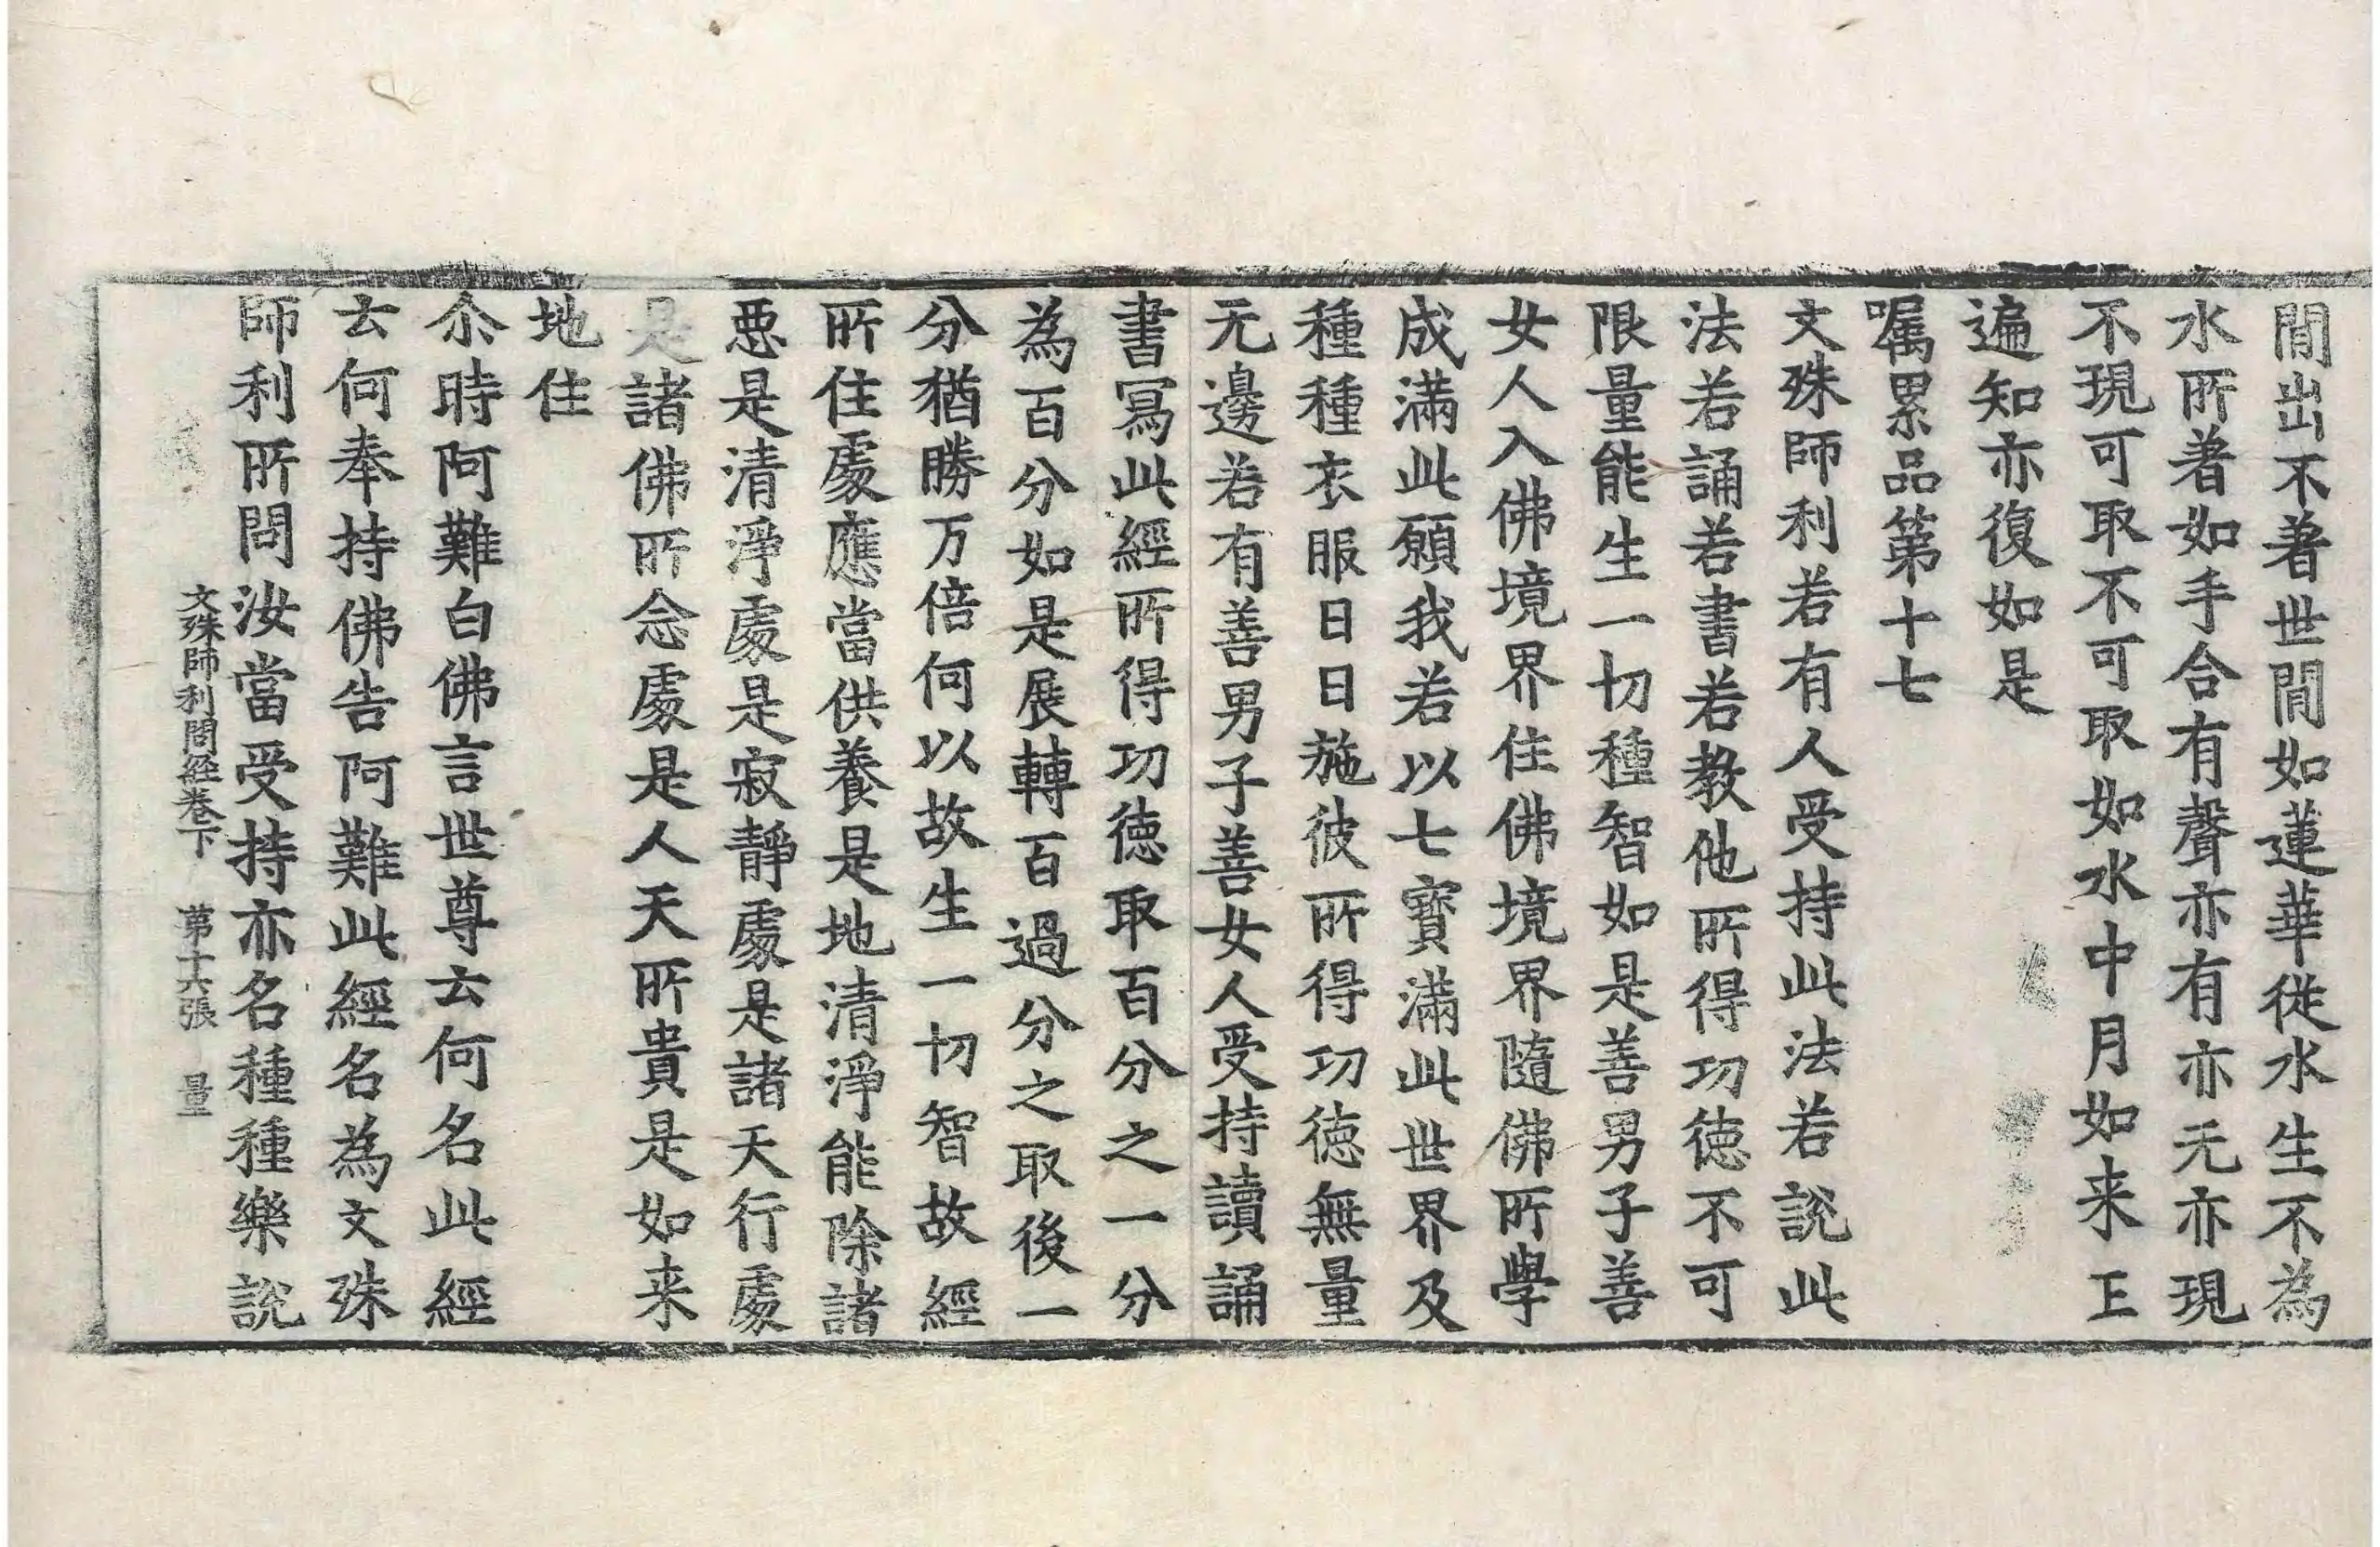 間出不著世間如蓮華從水生不為
水所著如手合有聲亦有亦无亦現
不現可取不可取如水中月如来𠄶
遍知亦復如是
嘱累品第十七
文殊師利若有人受持此法若說此
法若誦若書若教他所得功徳不可
限量能生一切種智如是善男子善
女人入佛境界住佛境界隨佛所學
成滿此願我若以七寶滿此世界及
種種衣服日日施彼所得功徳無量
无邊若有善男子善女人受持讀誦
書冩此經所得功徳取百分之一分
為百分如是展轉百過分之取後一
分猶勝万倍何以故生一切智故經
所住處應當供養是地清淨能除諸
惡是清淨處是寂靜處是諸天行處
是諸佛所念處是人天所貴是如来
地住
尒時阿難白佛言世尊云何名此經
云何奉持佛告阿難此經名為文殊
師利所問汝當受持亦名種種樂說
文殊師利問経卷下 第十六張 量